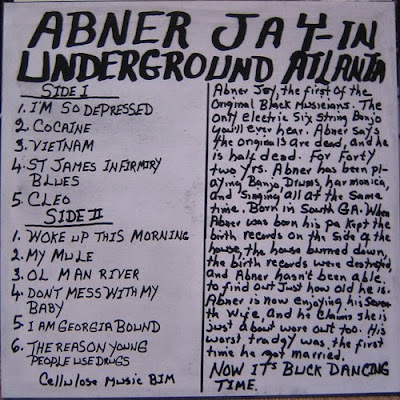 ABNER JAY-IN
UNDERGROUND ATLANTA
SIDE I
1. I'M SO DEPRESSED
2. COCAINE
3. VIETNAM
4. ST JAMES INFIRMIRY
BLUES
5. CLEO
SIDE II
1. WOKE UP THIS MORNING
2. MY MULE
3. OL MAN RIVER
4. DON'T MESS WITH MY
BABY
5. I AM GEORGIA BOUND
6. THE REASON YOUNG
PEOPLE USE DRUGS
Cellulose Music BIM
Abner Jay, the first of the
Original Black Musicians. The
only electric Six String Banjo
you'll ever hear. Abner says
the originals are dead, and he
is half dead. For Forty
two yrs. Abner has been pl-
aying Banjo, Drums, harmonica,
and Singing all at the Same
time. Born in South GA. When
Abner was born his pa kept the
birth records on the Side of the
house, the house burned down,
the birth records were destroyed
and Abner hasn't been able
to find out Just how old he is.
Abner is now enjoying his Seventh
Wife, and he Claims she is
just about wore out too. His
worst tradgy was the first
time he got married.
NOW IT'S BUCK DANCING
TIME.